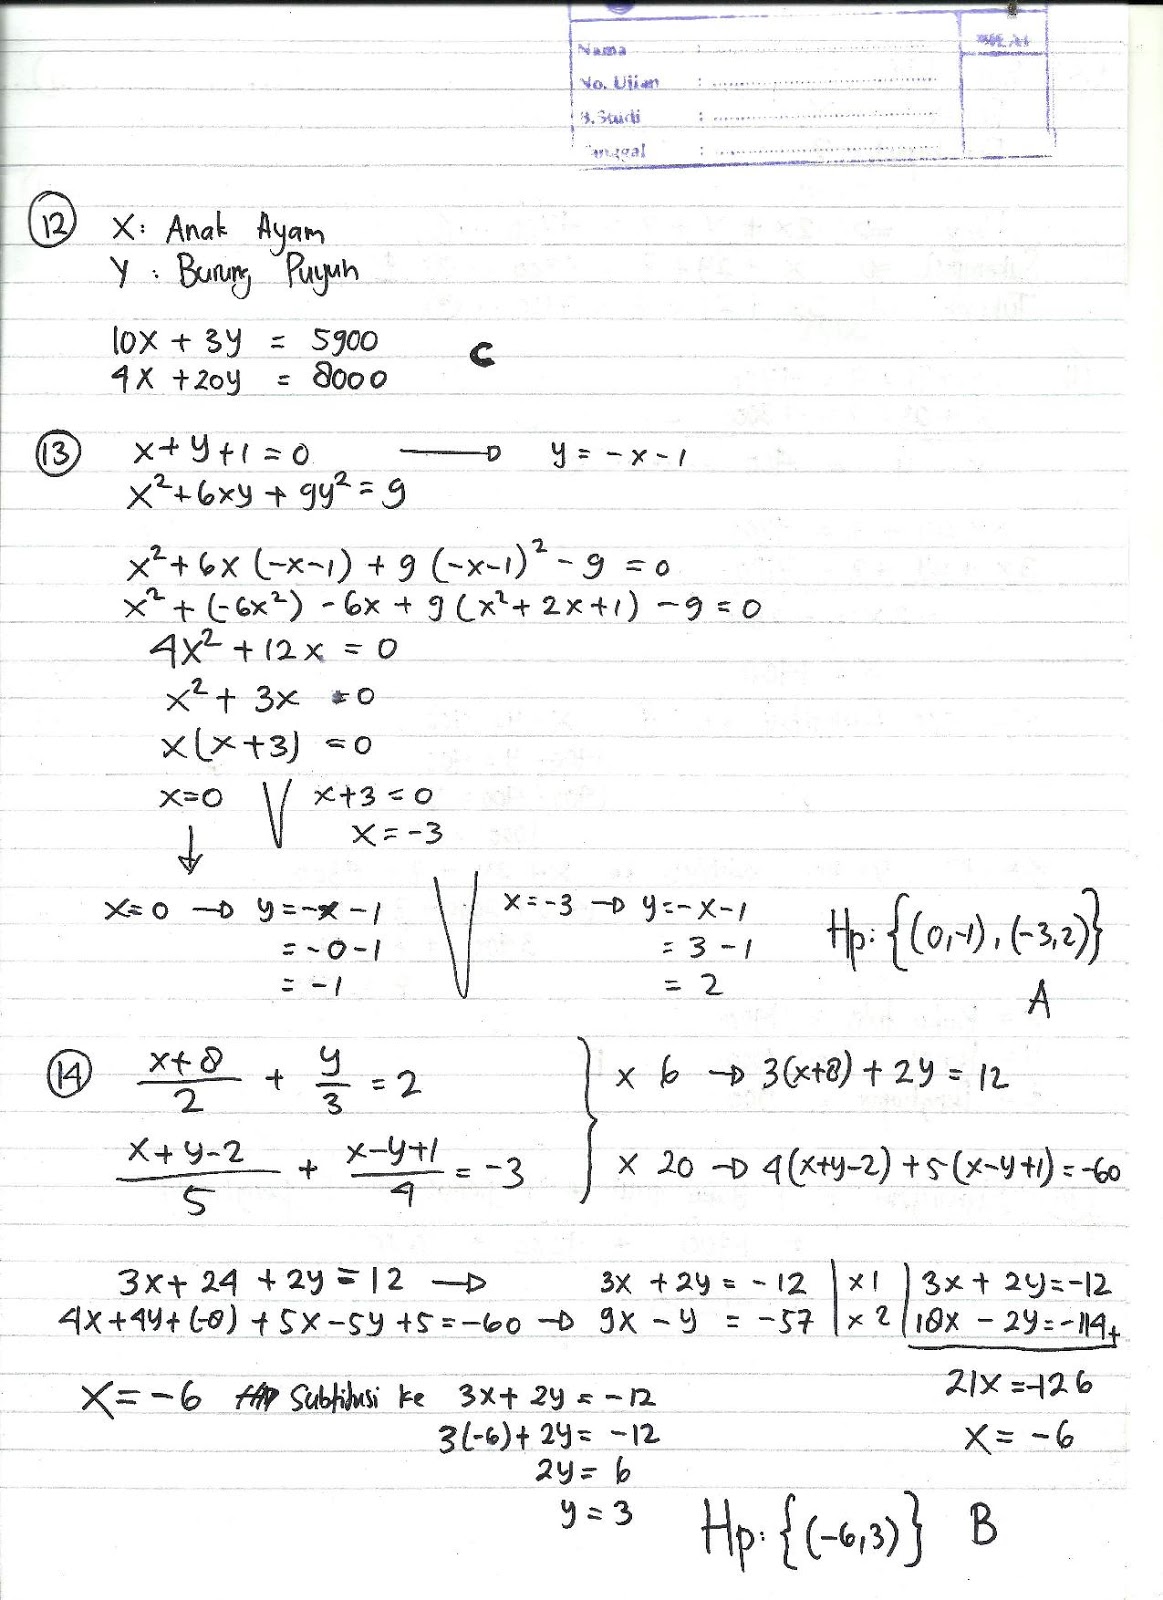 Nama : ........................
No. Ujian : ........................
B. Studi : ........................
Tanggal : ........................
12 X : Anak Ayam
Y : Burung Puyuh
10x + 3y = 5900
4x + 20y = 8000
C
13 x + y + 1 = 0 → y = -x - 1
x² + 6xy + 9y² = 9
x² + 6x (-x-1) + 9 (-x-1)² - 9 = 0
x² + (-6x²) - 6x + 9 (x² + 2x + 1) - 9 = 0
4x² + 12x = 0
x² + 3x = 0
x(x+3) = 0
x=0 V x+3 = 0
x = -3
↓
x=0 → y = -x - 1 V x = -3 → y = -x - 1
= -0 - 1 = 3 - 1
= -1 = 2
Hp: {(0,-1), (-3,2)}
A
14 (x+8)/2 + y/3 = 2 } x 6 → 3(x+8) + 2y = 12
(x+y-2)/5 + (x-y+1)/4 = -3 } x 20 → 4(x+y-2) + 5(x-y+1) = -60
3x + 24 + 2y = 12 → 3x + 2y = -12 | x1 | 3x + 2y = -12
4x + 4y + (-8) + 5x - 5y + 5 = -60 → 9x - y = -57 | x2 | 18x - 2y = -114 +
21x = -126
x = -6
x = -6 Subtitusi ke 3x + 2y = -12
3(-6) + 2y = -12
2y = 6
y = 3
Hp: {(-6,3)} B